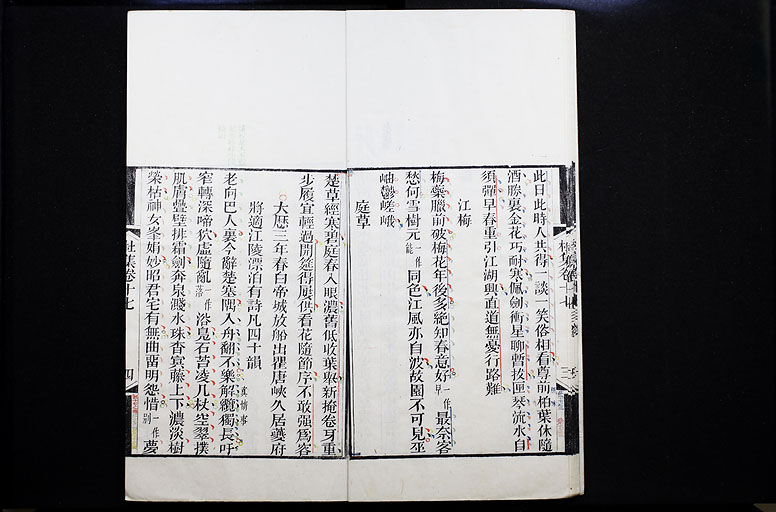 此日此時人共得一談一笑俗相看尊前柏葉休隨
酒勝裏金花巧耐寒佩劍衝星聊暫拔匣琴流水自
須彈早春重引江湖興直道無憂行路難
江梅
梅蘂臘前破梅花年後多絶知春意好一作早最奈客
愁何雪樹元一作能同色江風亦自波故園不可見巫
岫鬱嵯峨
庭草
楚草經寒碧庭春入眼濃舊低收葉舉新掩卷牙重
步履宜輕過開筵得屢供看花隨節序不敢强爲容
大厯三年春白帝城放船出瞿唐峽久居夔府
將適江陵漂泊有詩凡四十韻
老向巴人裏今辭楚塞隅入舟翻不樂解纜獨長吁
窄轉深啼狖虛隨亂一作落浴鳧石苔凌几杖空翠撲
肌膚疊壁排霜劍奔泉濺水珠杳冥藤上下濃淡樹
榮枯神女峯娟妙昭君宅有無曲留明怨惜一作别夢
杜集卷十七
三
杜集卷十七
四